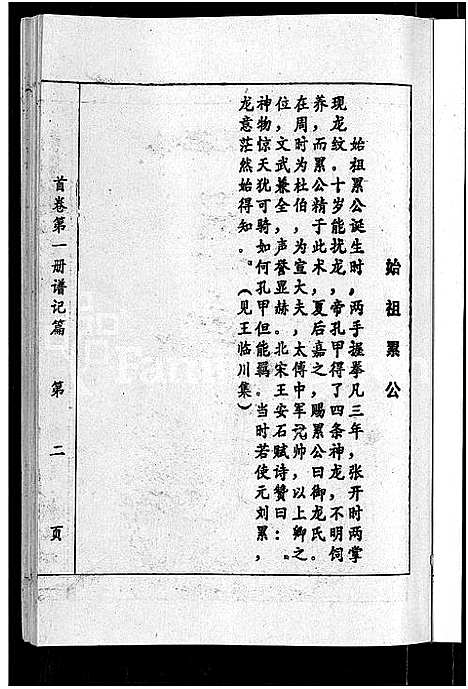 始祖累公
始祖累公诞生时，两手握拳凡三年，张开时两掌
现龙纹。十岁能扰龙，帝孔甲得了四条神龙，不明饲
养，而累公精于此术，夏后嘉之，赐累公曰御龙氏。
在周时为杜伯，为宣大夫，太傅中军元帅，以上卿之
位，文武兼全，声誉显赫。北宋王安石赋诗赞曰：“
神物惊天犹可骑如何孔甲但能羁。当时若使元刘累，
龙意茫然始得知。”（见王临川集）
首卷第一册谱记篇 第二页